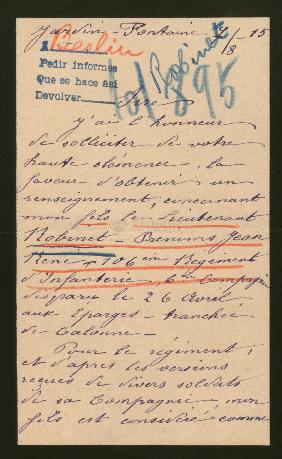 Jardin-Fontaine 6/8-15
Berlin
Pedir informes
Que se hace así
Devolver
Robinet
101895
Sire
J'ai l'honneur
de solliciter de votre
haute clémence, la
faveur d'obtenir un
renseignement, concernant
mon fils le Lieutenant
Robinet - Prénoms Jean
René 106ème Régiment
d'Infanterie, 6me Compagnie
disparu le 26 Avril,
aux Eparges - tranchée
de Calonne -
Pour le régiment,
et d'après les versions
reçues de divers soldats
de sa Compagnie, mon
fils est considéré comme